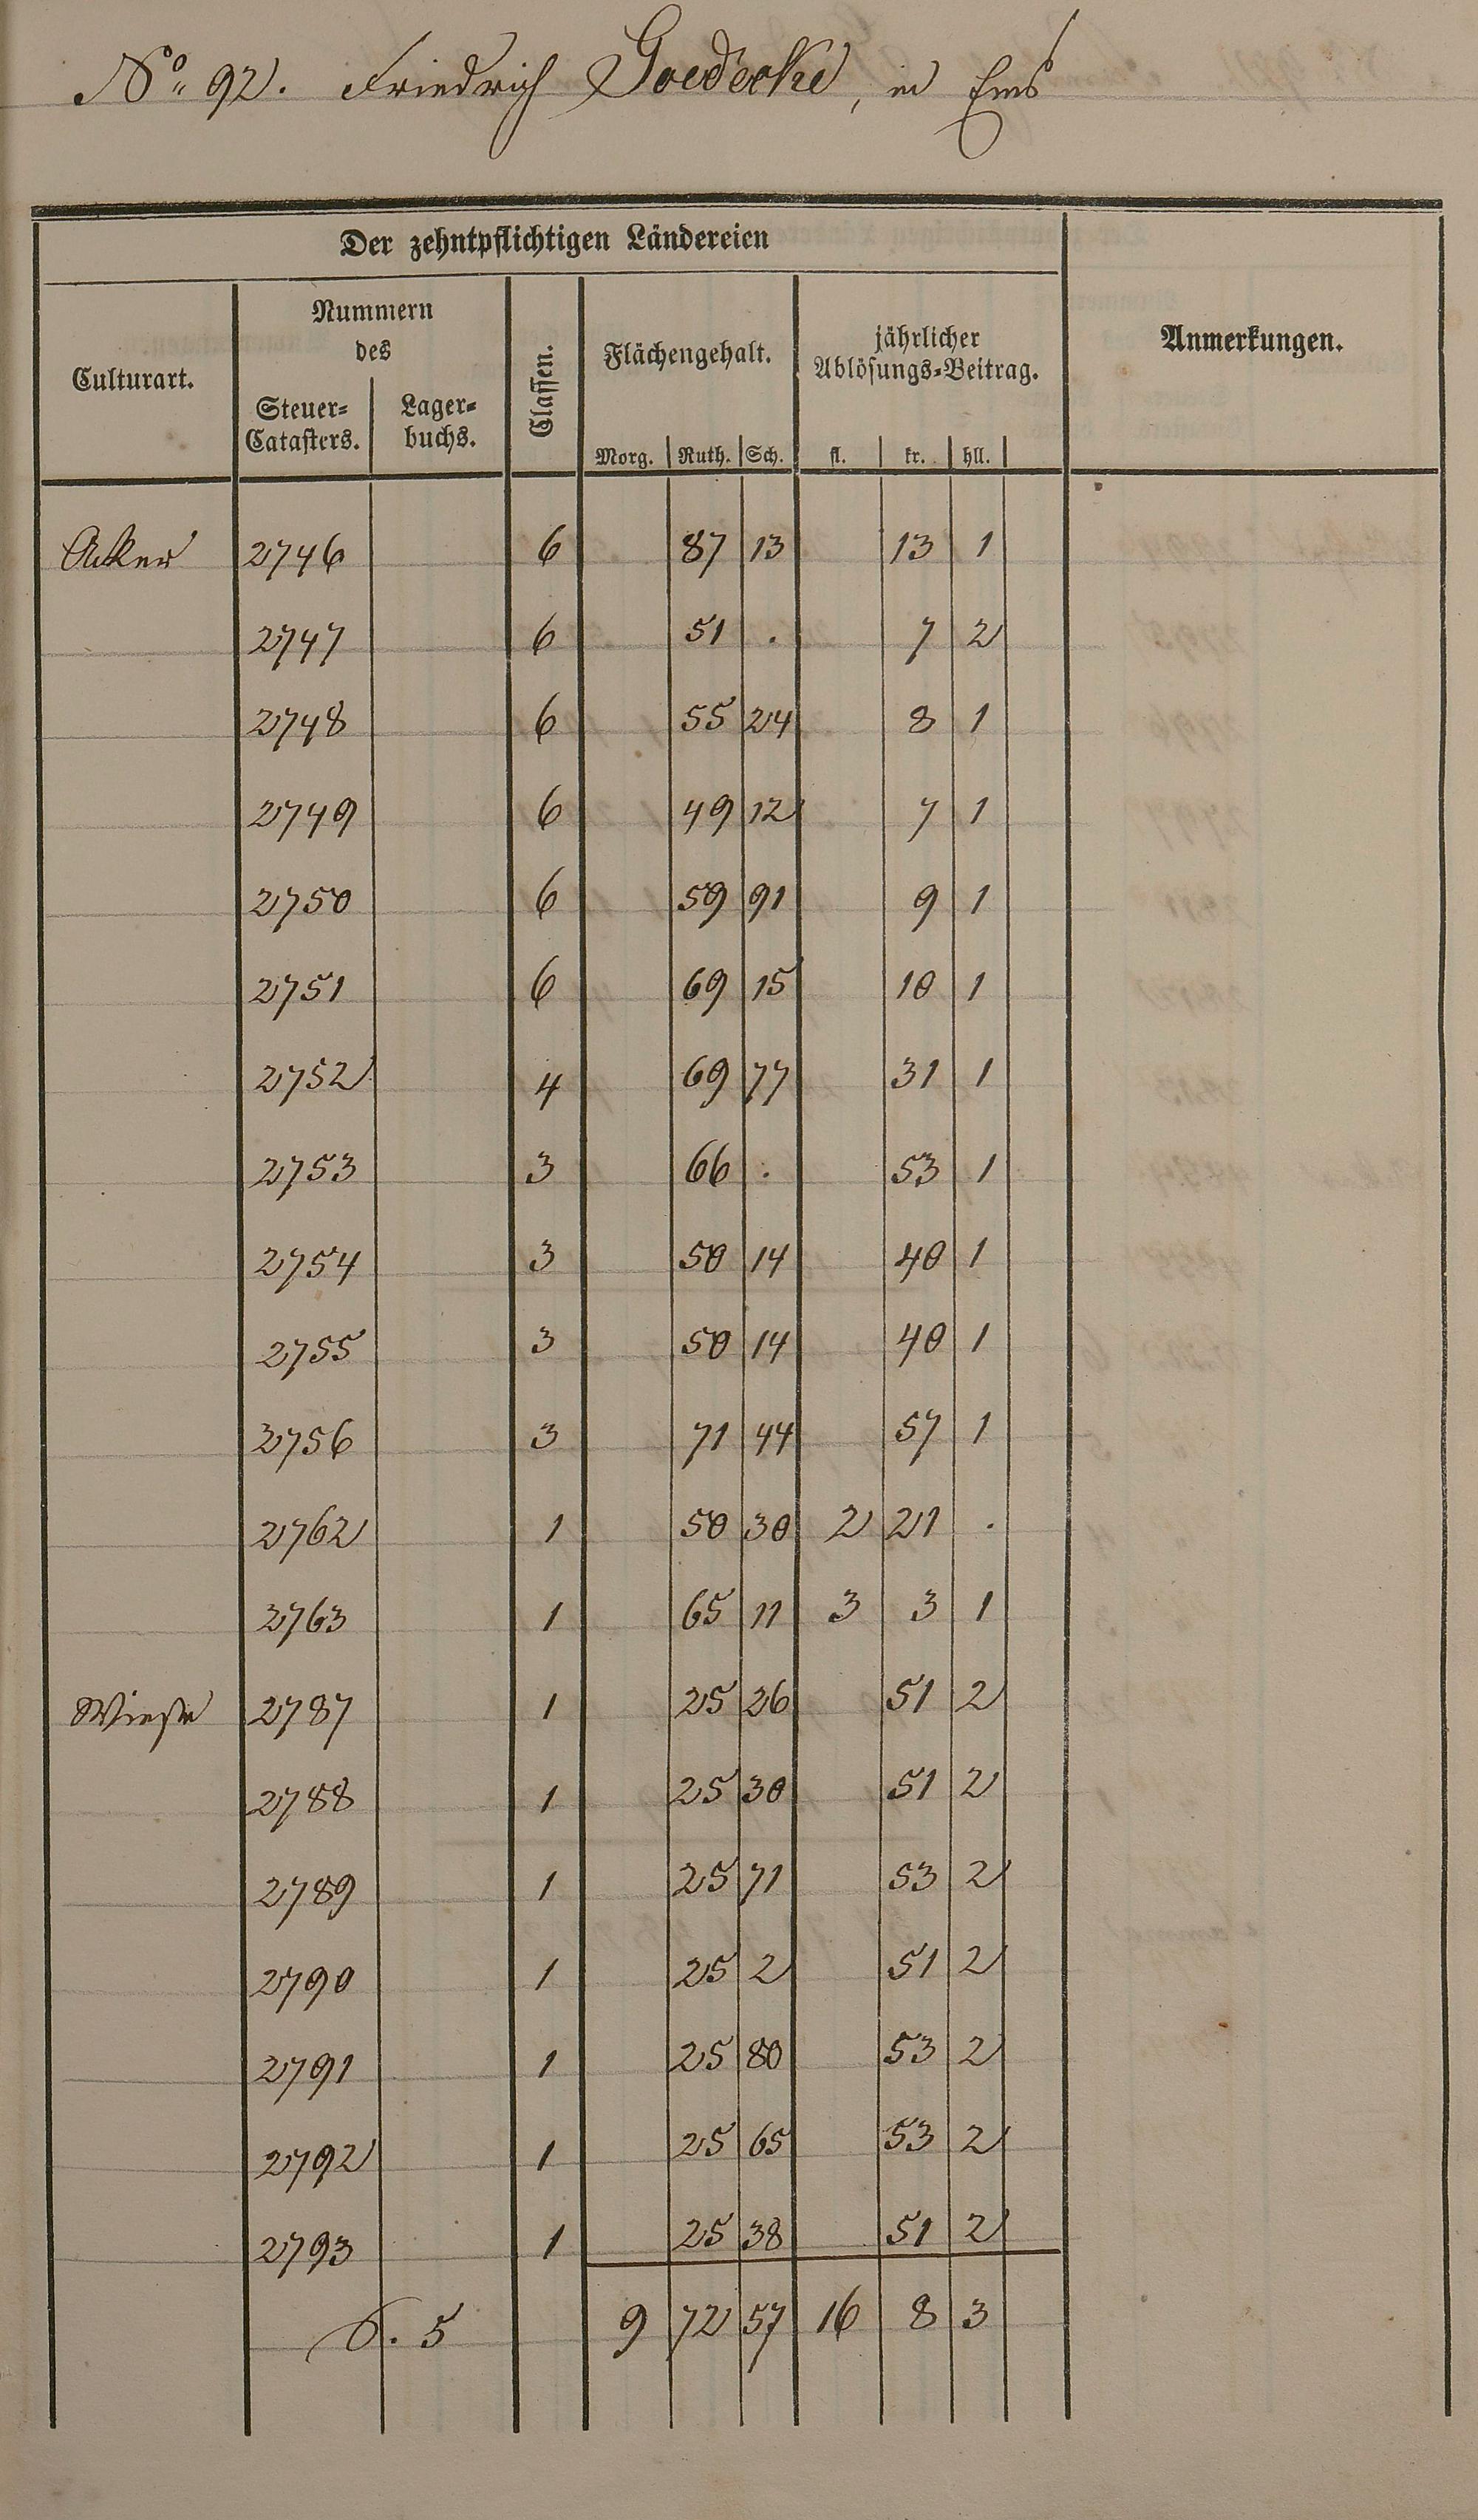 No. 92. Friedrich Goedecke, in Ems
Der zehntpflichtigen Ländereien
Culturart. Nummern des Steuer-Catasters. Lagerbuchs. Classen. Flächengehalt. jährlicher Ablösungs-Beitrag. Anmerkungen.
Morg. Ruth. Sch. fl. kr. hll.
Acker 2746 6 87 13 13 1
2747 6 51 . 7 2
2748 6 55 24 8 1
2749 6 49 12 7 1
2750 6 59 91 9 1
2751 6 69 15 10 1
2752 4 69 77 31 1
2753 3 66 . 53 1
2754 3 50 14 40 1
2755 3 50 14 40 1
2756 3 71 44 57 1
2762 1 50 30 2 21 .
2763 1 65 11 3 3 1
Wiese 2787 1 25 26 51 2
2788 1 25 30 51 2
2789 1 25 71 53 2
2790 1 25 2 51 2
2791 1 25 80 53 2
2792 1 25 65 53 2
2793 1 25 38 51 2
S. 5 9 72 57 16 8 3